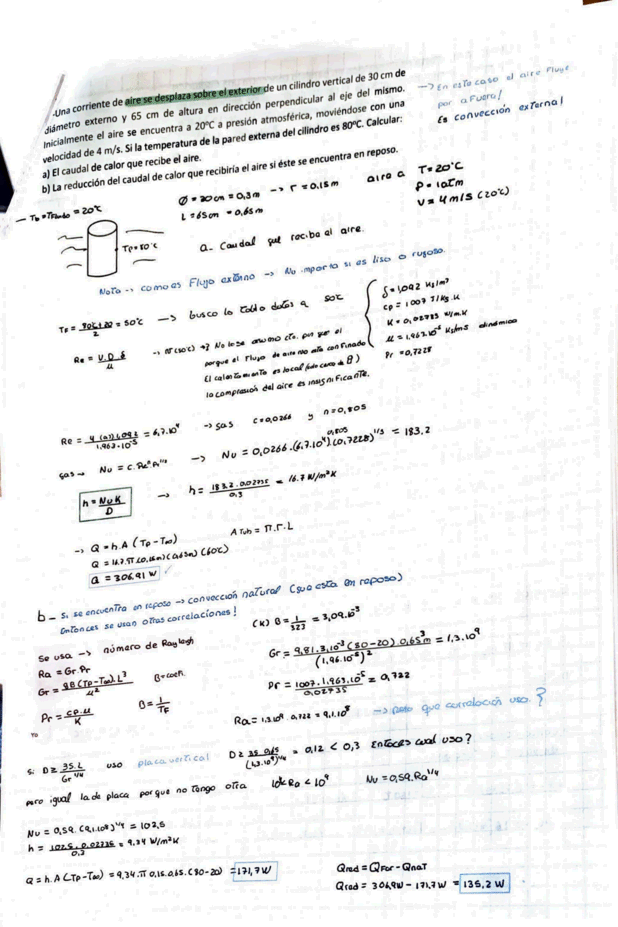 -Una corriente de aire se desplaza sobre el exterior de un cilindro vertical de 30 cm de
diámetro externo y 65 cm de altura en dirección perpendicular al eje del mismo.
Inicialmente el aire se encuentra a 20ºC a presión atmosférica, moviéndose con una
velocidad de 4 m/s. Si la temperatura de la pared externa del cilindro es 80ºC. Calcular:
a) El caudal de calor que recibe el aire.
b) La reducción del caudal de calor que recibiría el aire si éste se encuentra en reposo.
→ En este caso el aire Fluye
por aFuera!
Es convección externa!
— Tb = TFluido = 20ºC
Tp=80ºC
Ø = 30cm = 0,3m → r = 0.15m
L = 65cm = 0,65m
aire a
T= 20ºC
P = 1atm
V = 4m/s (20ºC)
a- Caudal que recibe el aire.
Nota → como es Flujo externo → No importa si es liso o rugoso.
TF = 80+20 / 2 = 50ºC → busco la tabla datos a 50ºC
δ = 1,092 Kg/m³
cp = 1007 J/kg.K
K = 0,02735 W/m.K
μ = 1,963.10⁻⁵ Kg/ms dinámica
Pr = 0,7228
Re = V.D.δ / μ
porque el Flujo de aire no esta confinado
El calentamiento es local
la compresión del aire es insignificante.
Re = 4 (0,3) 1,092 / 1.963.10⁻⁵ = 6,7.10⁴ → gas C=0,0266 y n=0,805
gas → Nu = C.Reⁿ.Pr^1/3 → Nu = 0,0266.(6,7.10⁴)^0,805 (0,7228)^1/3 = 183.2
h = Nu K / D → h = 183.2 . 0.02735 / 0,3 = 16.7 W/m²K
→ Q = h.A (Tp - T∞) A Tub = π.r.L
Q = 16.7.π (0,15m) (0,65m) (60ºC)
Q = 306,91 W
b - Si se encuentra en reposo → convección natural (que esta en reposo)
Entonces se usan otras correlaciones!
Se usa → número de Rayleigh
Ra = Gr.Pr
Gr = gβ(Tp-T∞).L³ / μ² β=coefi.
Pr = cp.μ / K β = 1 / TF
(K) β = 1 / 323 = 3,09.10⁻³
Gr = 9,81.3,10⁻³ (80-20) 0,65³ / (1,96.10⁻⁵)² = 1,3.10⁹
Pr = 1007.1,963.10⁻⁵ / 0,02735 = 0,722
Ra = 1.3.10⁹. 0.722 = 9,1.10⁸ → pero que correlación uso?
si D ≥ 35.L / Gr^1/4 uso placa vertical D ≥ 35 0,65 / (1,3.10⁹)^1/4 = 0,12 < 0,3 Entoces cual uso?
pero igual la de placa porque no tengo otra 10⁴<Ra < 10⁹ Nu = 0,59.Ra^1/4
Nu = 0,59. (9,1.10⁸)^1/4 = 102,5
h = 102.5 . 0.02735 / 0.3 = 9.34 W/m²K
Q = h.A (Tp - T∞) = 9,34.π 0,15.0,65.(80-20) = 171,7 W
Qred = QFor - Qnat
Qred = 306,9W - 171,7W = 135,2 W